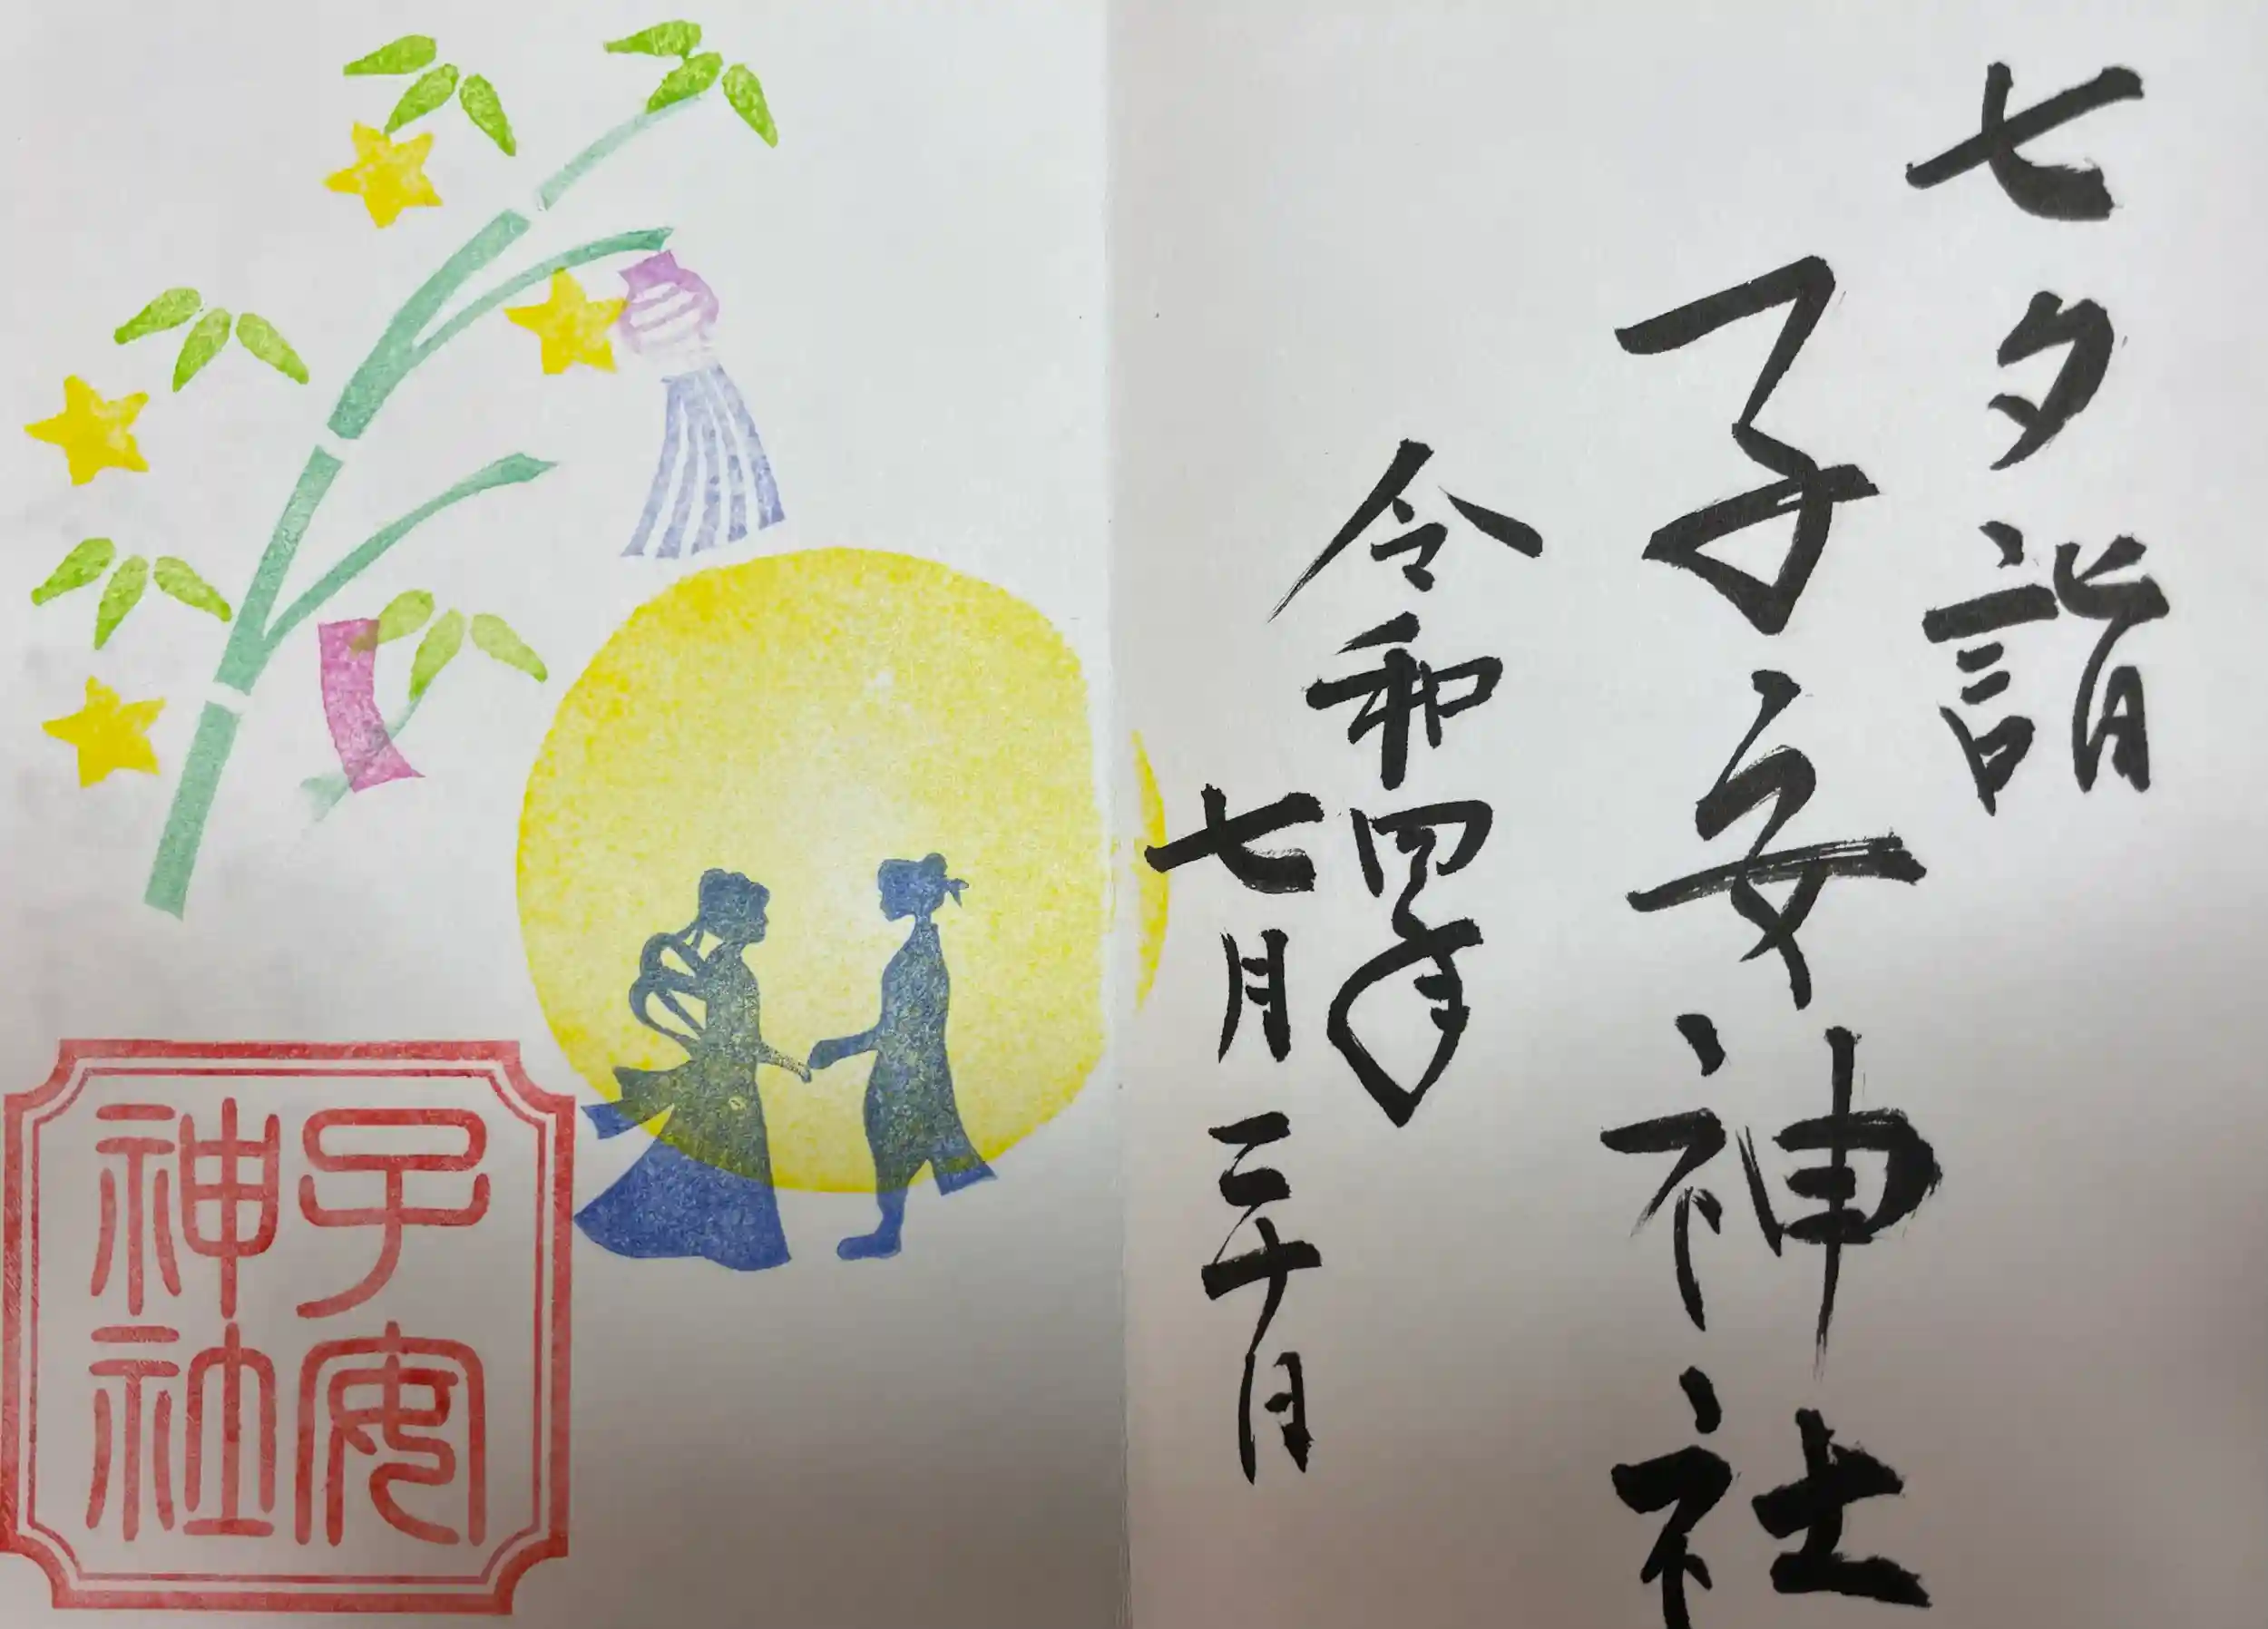 七夕詣
子安神社
令和四年
七月三十日
子安
神社